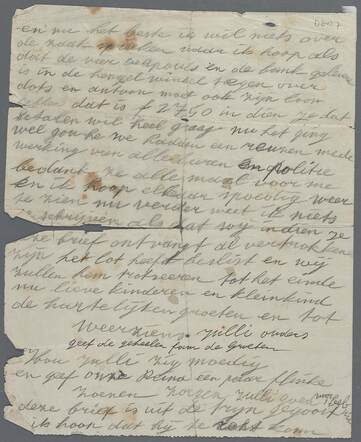 0607
en nu het beste ik wil niets over
de zaak spreken maar ik hoop als
dat de in de bank
is in de hengel winkel tegen over
en antoon moet ook zijn loon
dat is f 27,50 in dien ze dat
betalen wil heel graag nu het ging
wel gou he we hadden een reuzen mede
werking van alle heren en politie
bedank ze allemaal voor me
en ik hoop elkaar spoedig weer
te zien nu verder weet ik niets
te schrijven als dat wij indien ze
de brief ontvangt al vertrokken
zijn het lot heeft beslist en wij
zullen hem trotseeren tot het einde
nu lieve kinderen en kleinkind
de hartelijken groeten en tot
weerziens jullie ouders
geef de geheelen fam de Groeten
Hou jullie zij moedig
en geef onze een paar flinke
zoenen zorgen jullie goed
deze brief is uit de trijn gegooit
ik hoop dat hij te recht komt